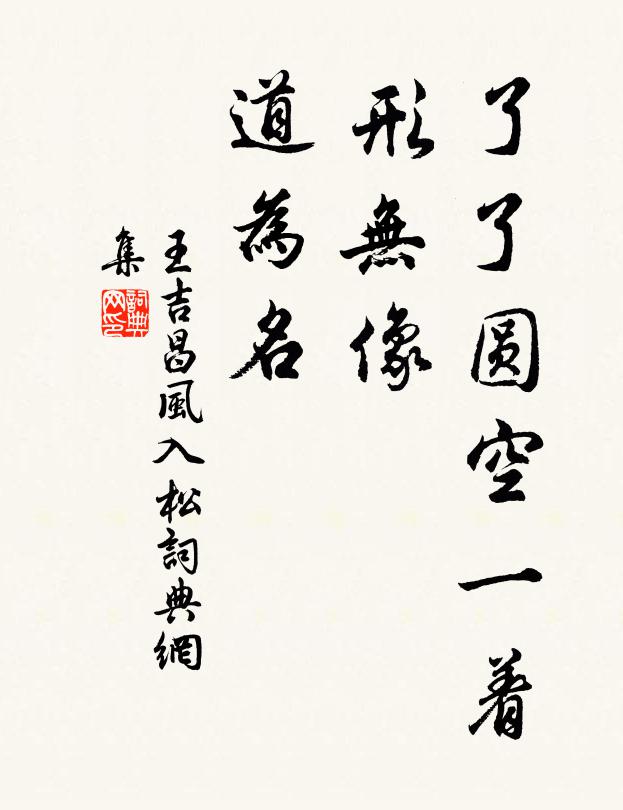 了了圓空一着
形無像
道為名
王吉昌風入松詞典網
集
詞典網印